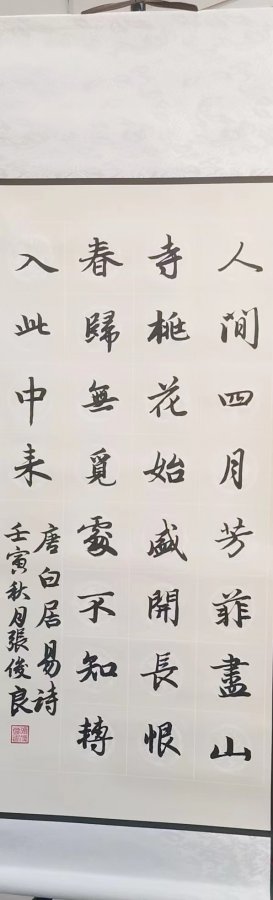 人間四月芳菲盡山
寺桃花始盛開長恨
春歸無覓處不知轉
入此中来
唐白居易詩
壬寅秋月張俊良